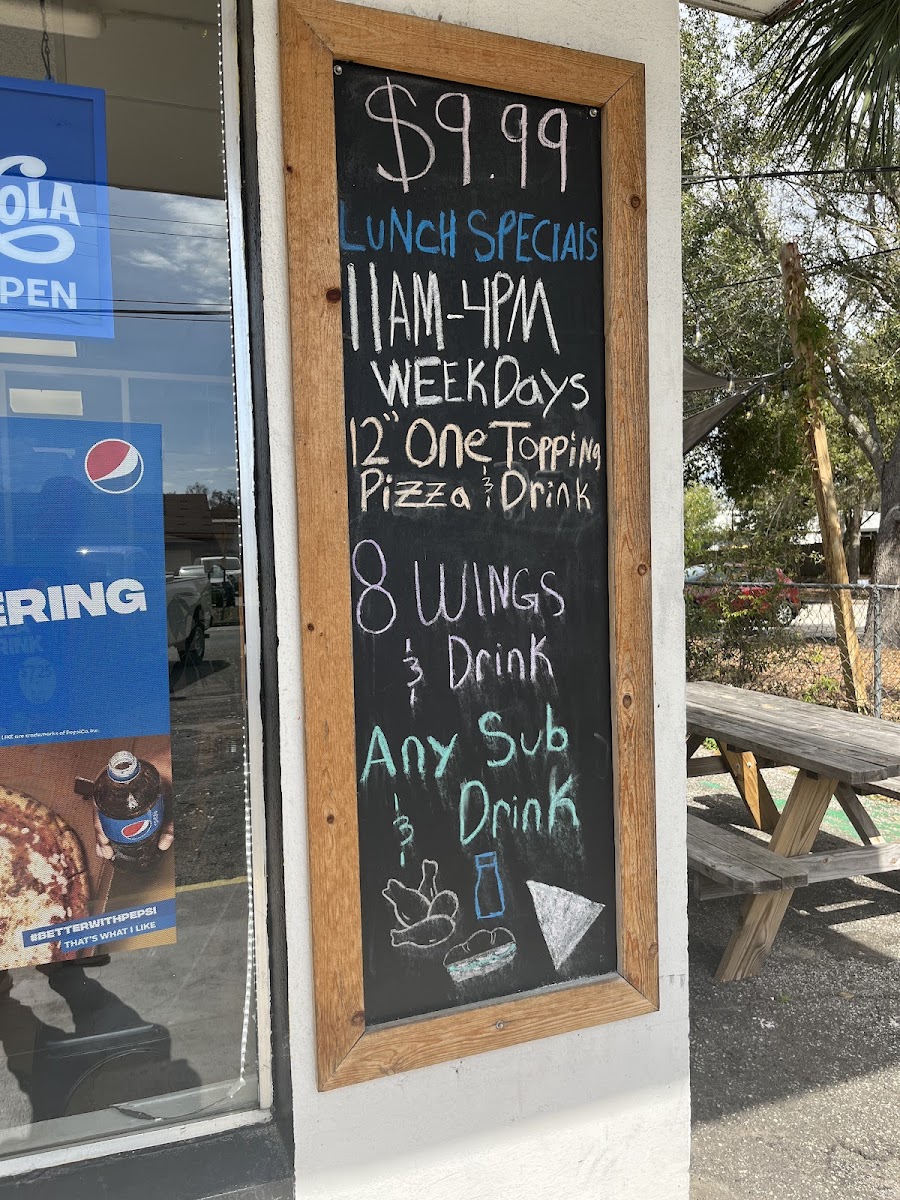 $9.99
LUNCH SPECIALS
11AM-4PM
WEEKDays
12" One Topping
Pizza & Drink
8 WINGS
& Drink
Any Sub
& Drink
OLA
PEN
ERING
RINK
LIKE are trademarks of PepsiCo, Inc.
#BETTERWITHPEPSI
THAT'S WHAT I LIKE